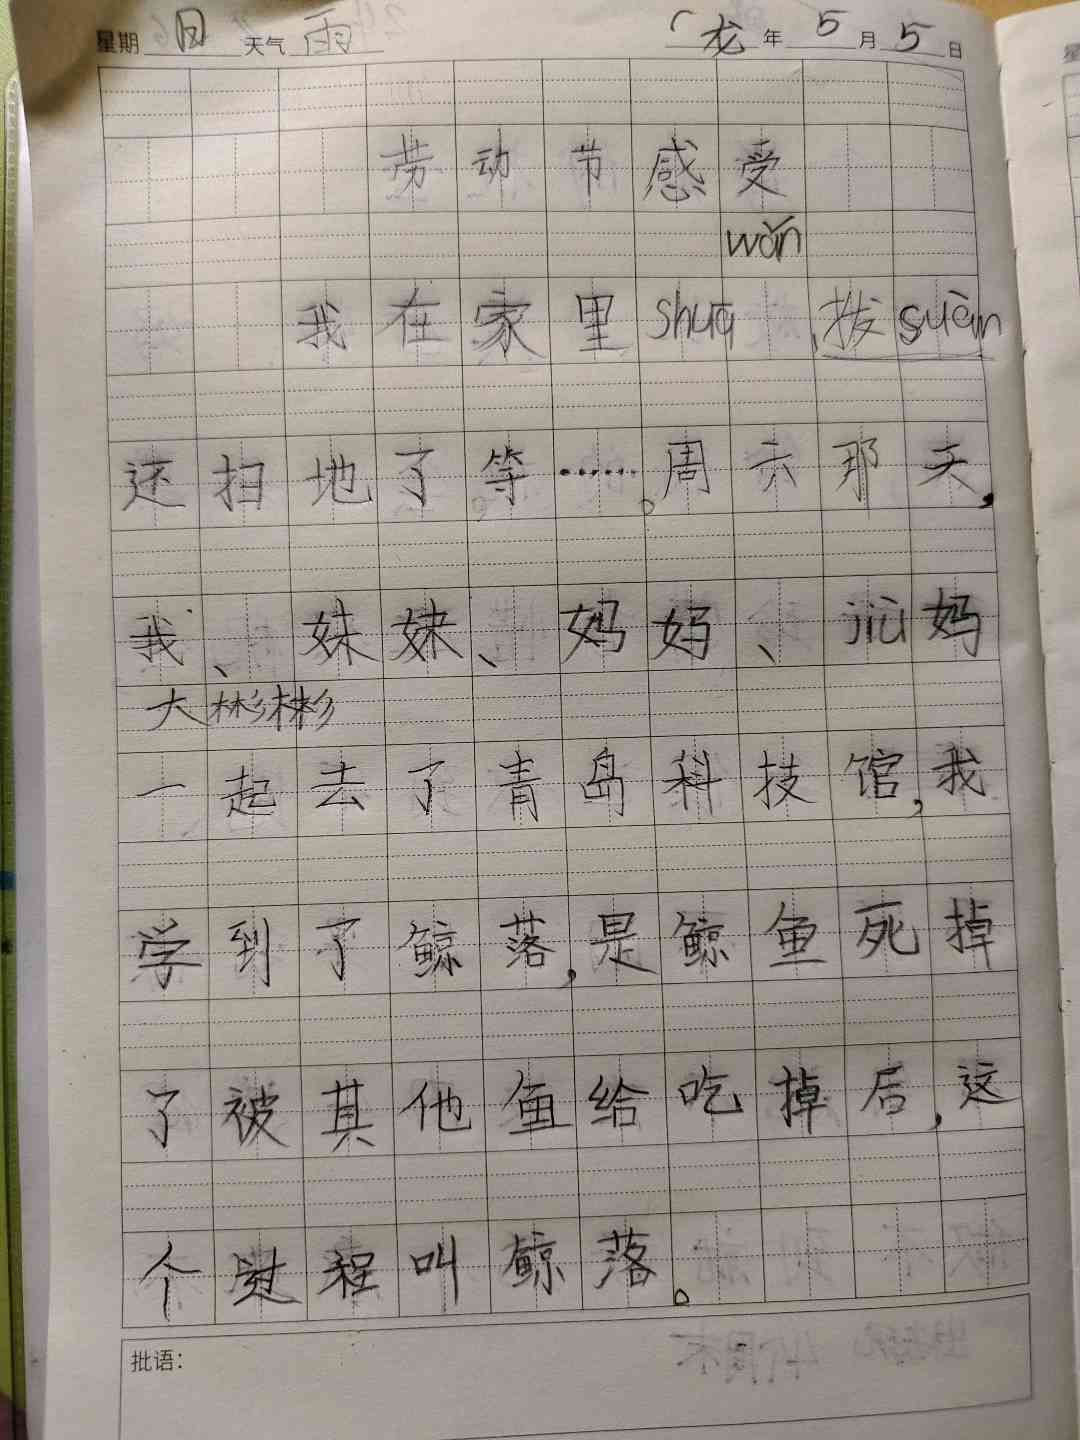 星期 日 天气 雨 龙 年 5 月 5 日
劳动节感受
wǎn
我在家里shuā 、拨suàn
还扫地了。等……。周六那天,
我、妹妹、妈妈、jiù妈
大彬彬
一起去了青岛科技馆,我
学到了鲸落,是鲸鱼死掉
了被其他鱼给吃掉后,这
个过程叫鲸落。
批语: